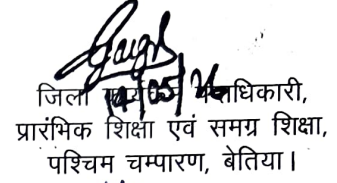 14/05/26
जिला पदाधिकारी,
प्रारंभिक शिक्षा एवं समग्र शिक्षा,
पश्चिम चम्पारण, बेतिया।